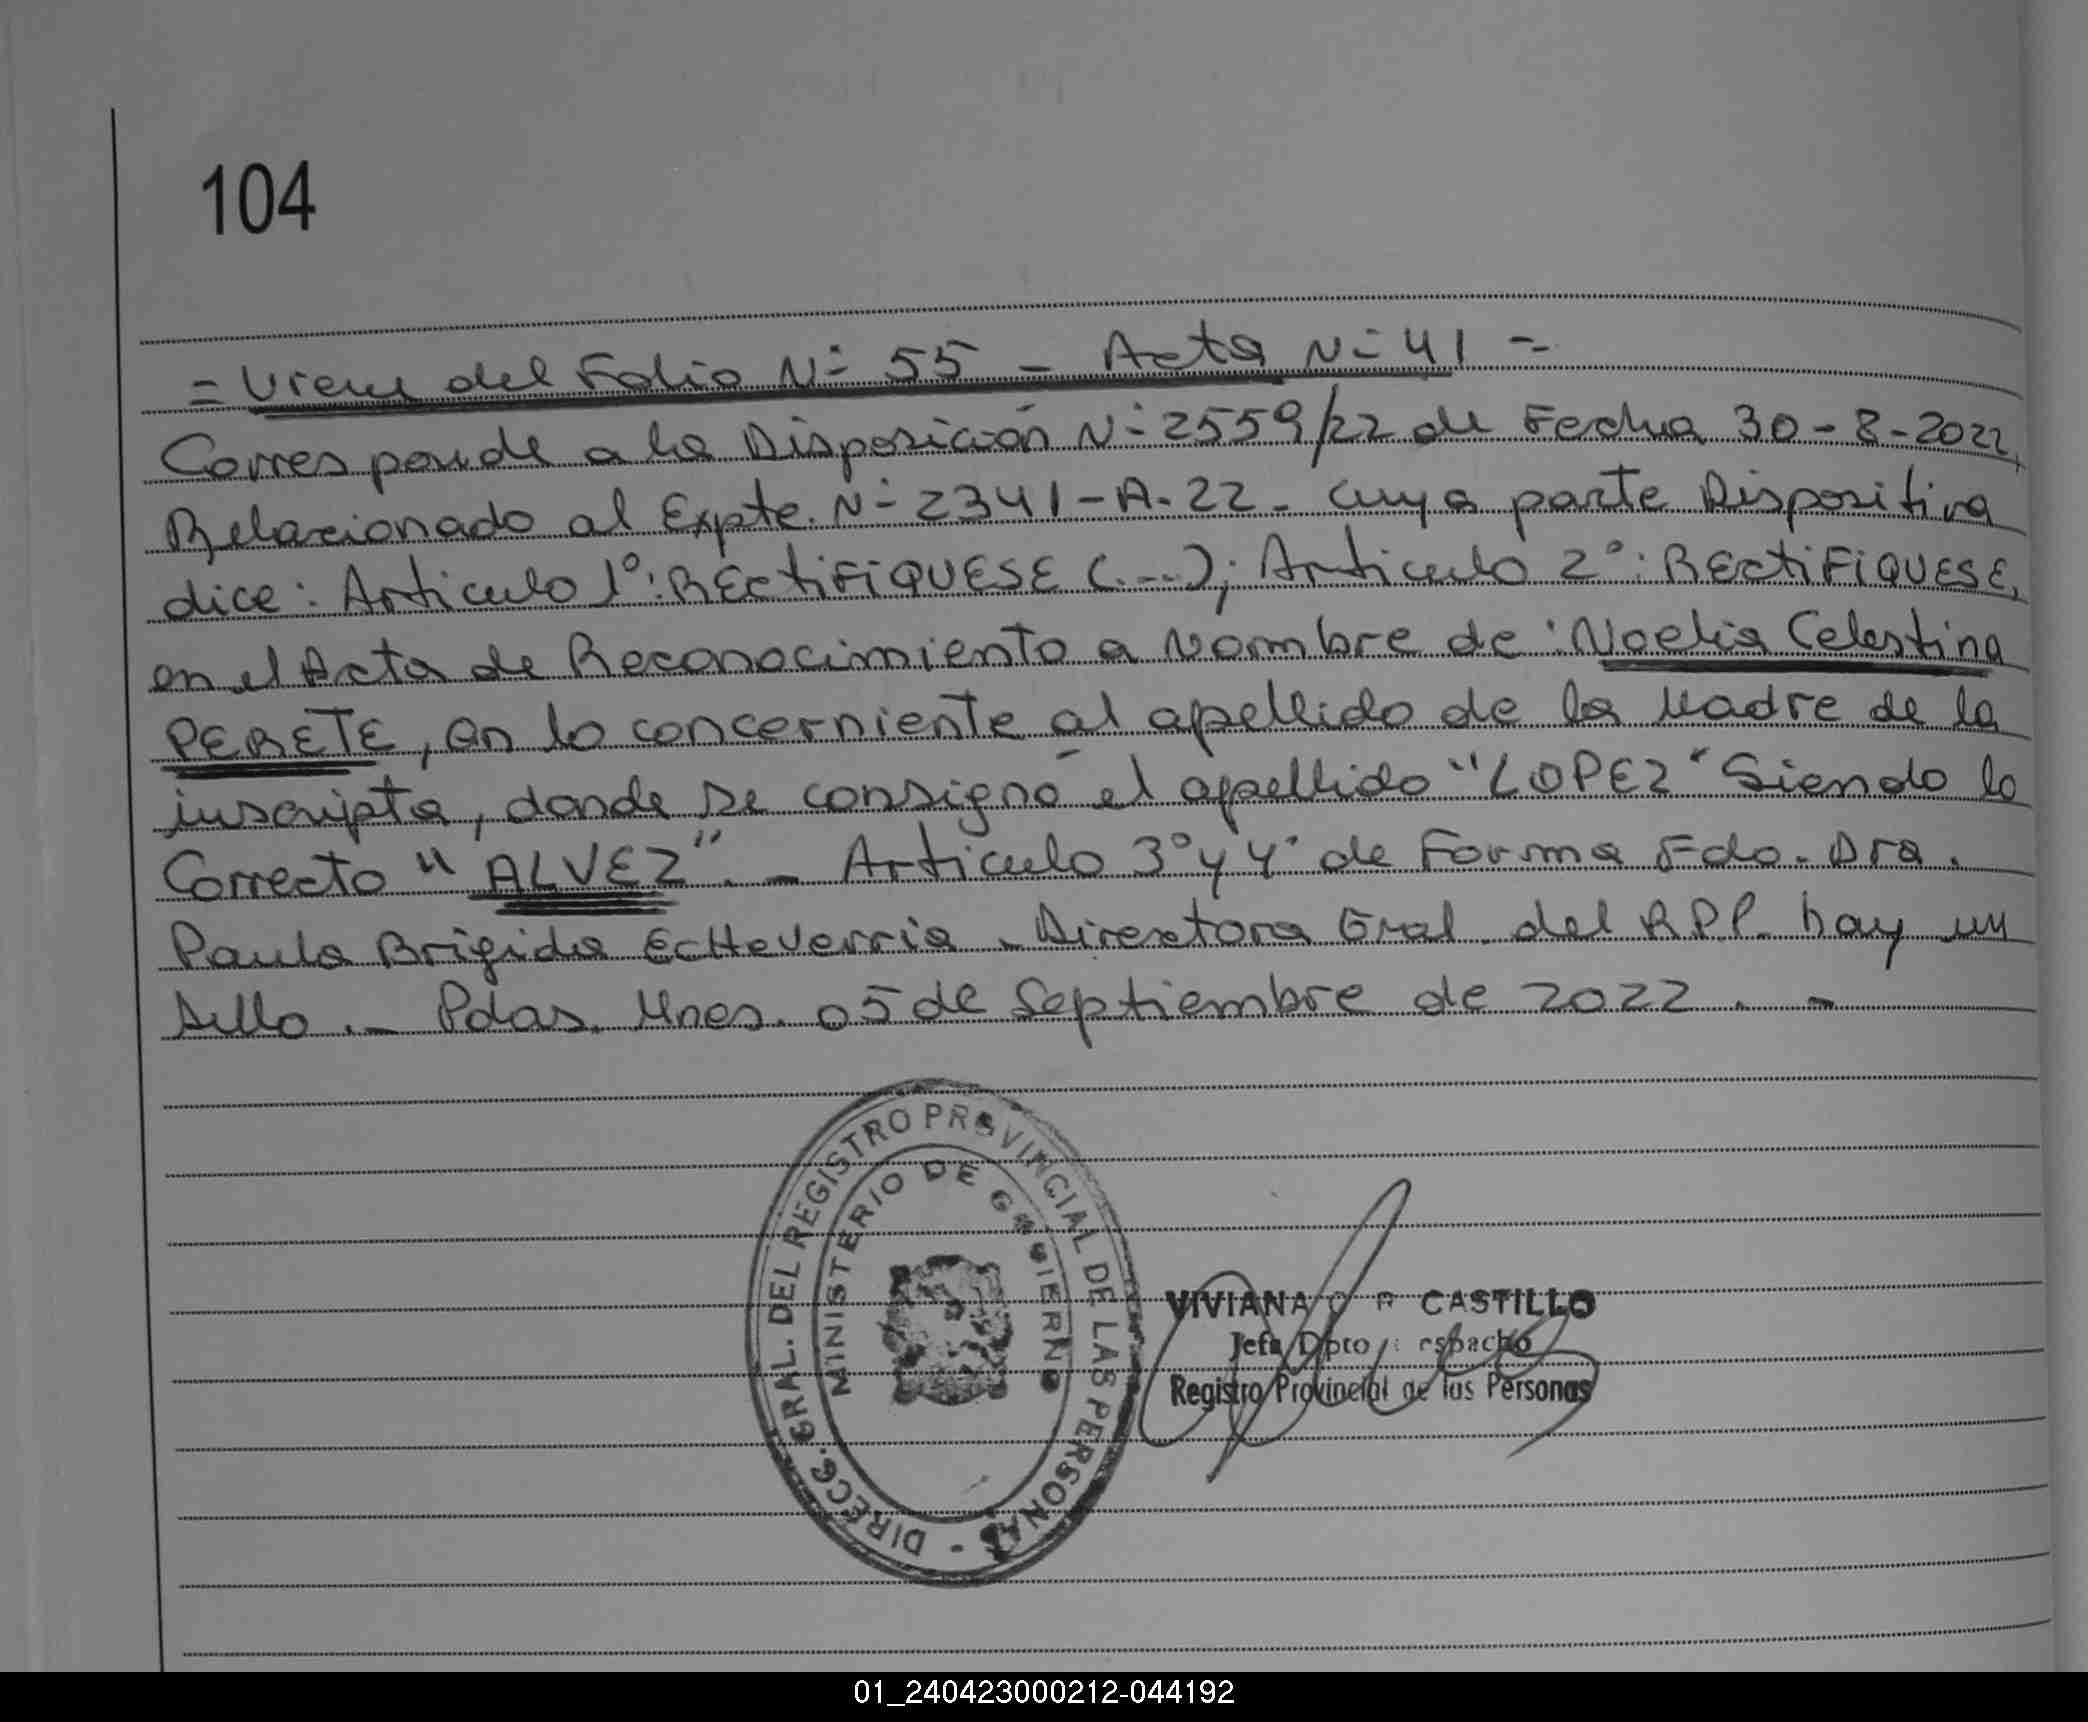 104
= Viene del Folio N= 55 - Acta N= 41 =
Corresponde a la Disposición N= 2559/22 de Fecha 30-8-2022,
Relacionado al Expte. N= 2341-A-22- cuya parte Dispositiva
dice: Articulo 1°: RECTIFIQUESE (...); Articulo 2°: RECTIFIQUESE,
en el Acta de Reconocimiento a Nombre de: Noelia Celestina
PERETE, en lo concerniente al apellido de la Madre de la
inscripta, donde se consignó el apellido "LOPEZ" Siendo lo
Correcto "ALVEZ".- Articulo 3° y 4° de Forma Fdo. Dra.
Paula Brigida Echeverria - Directora Gral. del RPP. hay un
sello.- Pdas. Mnes. 05 de Septiembre de 2022. -
DIRECC. GRAL. DEL REGISTRO PROVINCIAL DE LAS PERSONAS -
MINISTERIO DE GOBIERNO
VIVIANA CASTILLO
Jefa Dpto
Registro Provincial de las Personas
01_240423000212-044192